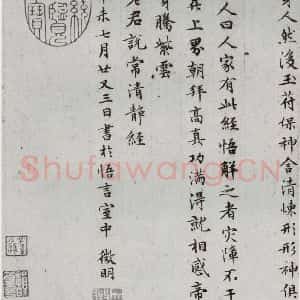 身然後玉符保神金液煉形形神俱
人曰人家有此經悟解之者災障不干
上界朝拜高真功滿得就相感帝
身騰紫雲
老君說常清靜經
未七月廿又三日書於悟言室中 徵明
Shufawang.CN